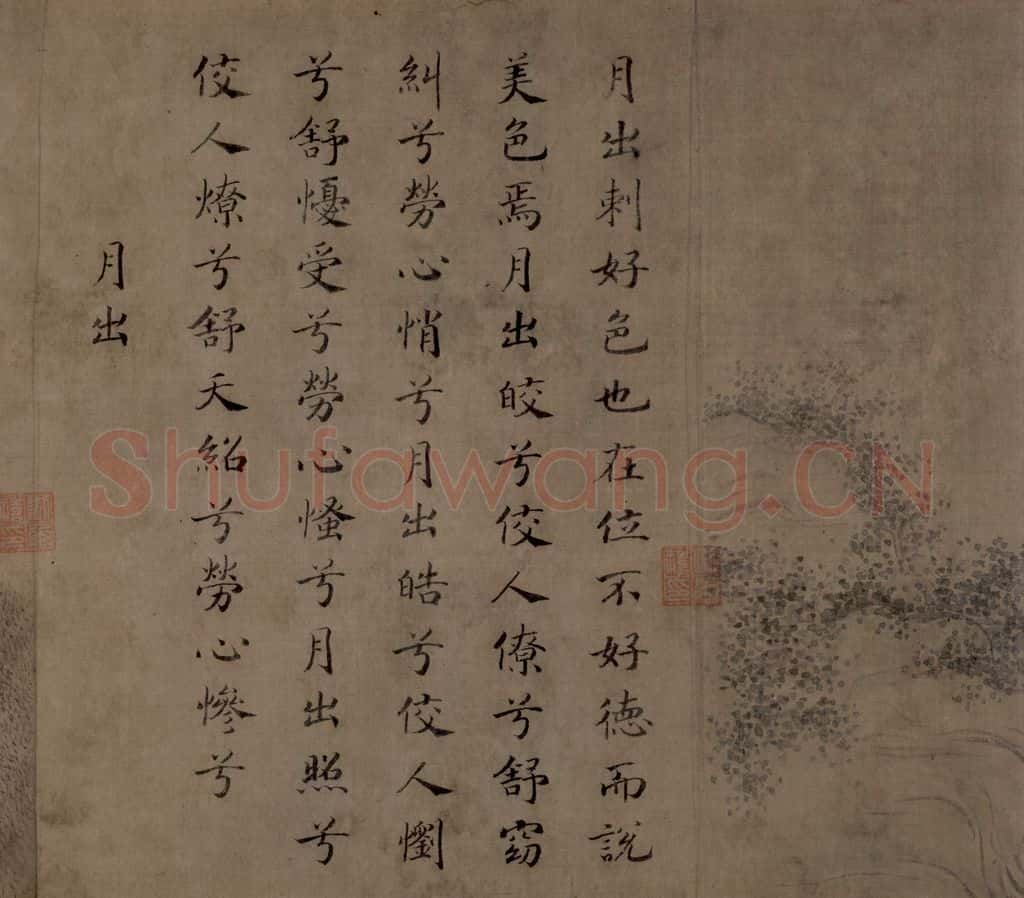 月出刺好色也在位不好德而說
美色焉月出皎兮佼人僚兮舒窈
糾兮勞心悄兮月出皓兮佼人懰
兮舒懮受兮勞心慅兮月出照兮
佼人燎兮舒夭紹兮勞心慘兮
月出
Shufawang.CN